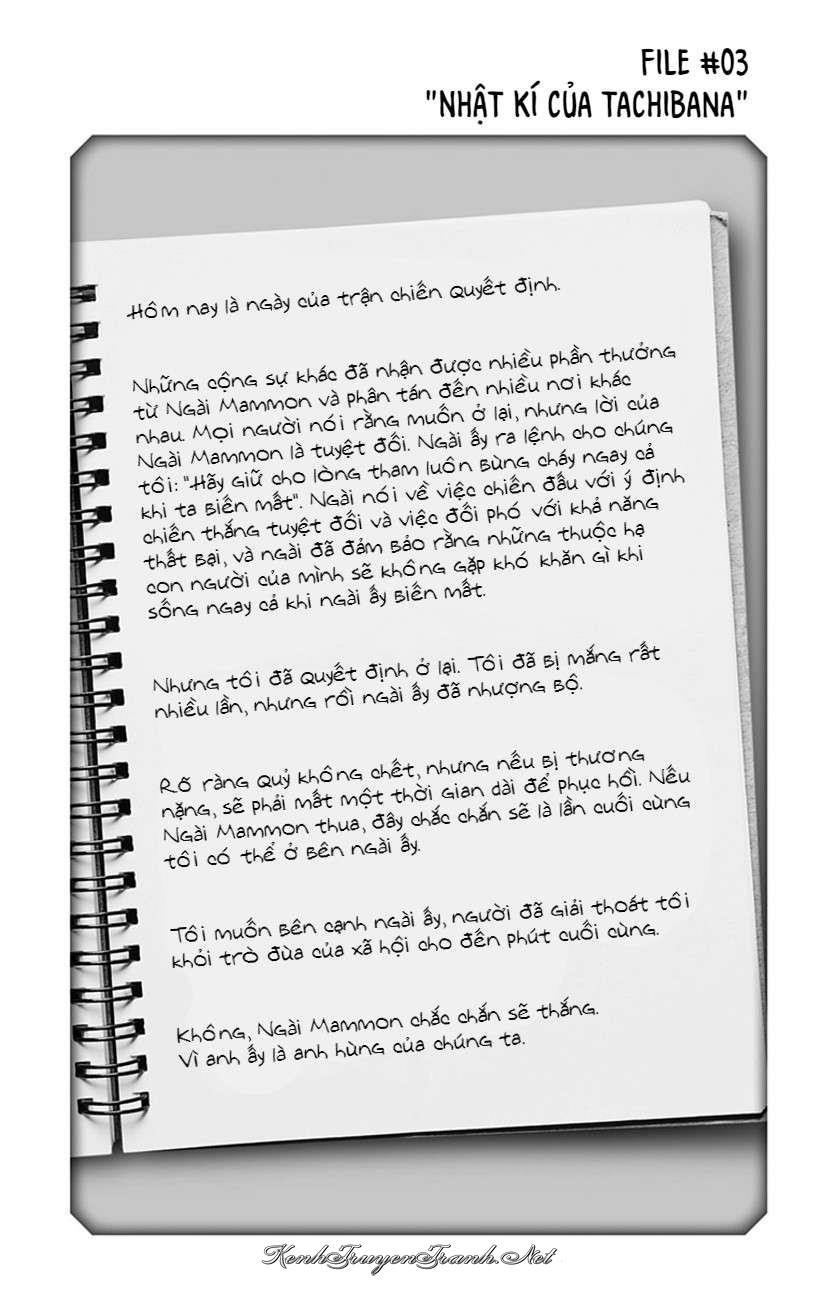 FILE #03
"NHẬT KÍ CỦA TACHIBANA"
Hôm nay là ngày của trận chiến quyết định.
Những cộng sự khác đã nhận được nhiều phần thưởng
từ Ngài Mammon và phân tán đến nhiều nơi khác
nhau. Mọi người nói rằng muốn ở lại, nhưng lời của
Ngài Mammon là tuyệt đối. Ngài ấy ra lệnh cho chúng
tôi: "Hãy giữ cho lòng tham luôn bùng cháy ngay cả
khi ta biến mất". Ngài nói về việc chiến đấu với ý định
chiến thắng tuyệt đối và việc đối phó với khả năng
thất bại, và ngài đã đảm bảo rằng những thuộc hạ
con người của mình sẽ không gặp khó khăn gì khi
sống ngay cả khi ngài ấy biến mất.
Nhưng tôi đã quyết định ở lại. Tôi đã bị mắng rất
nhiều lần, nhưng rồi ngài ấy đã nhượng bộ.
Rõ ràng quỷ không chết, nhưng nếu bị thương
nặng, sẽ phải mất một thời gian dài để phục hồi. Nếu
Ngài Mammon thua, đây chắc chắn sẽ là lần cuối cùng
tôi có thể ở bên ngài ấy.
Tôi muốn bên cạnh ngài ấy, người đã giải thoát tôi
khỏi trò đùa của xã hội cho đến phút cuối cùng.
Không, Ngài Mammon chắc chắn sẽ thắng.
Vì anh ấy là anh hùng của chúng ta.
KenhTruyenTranh.Net